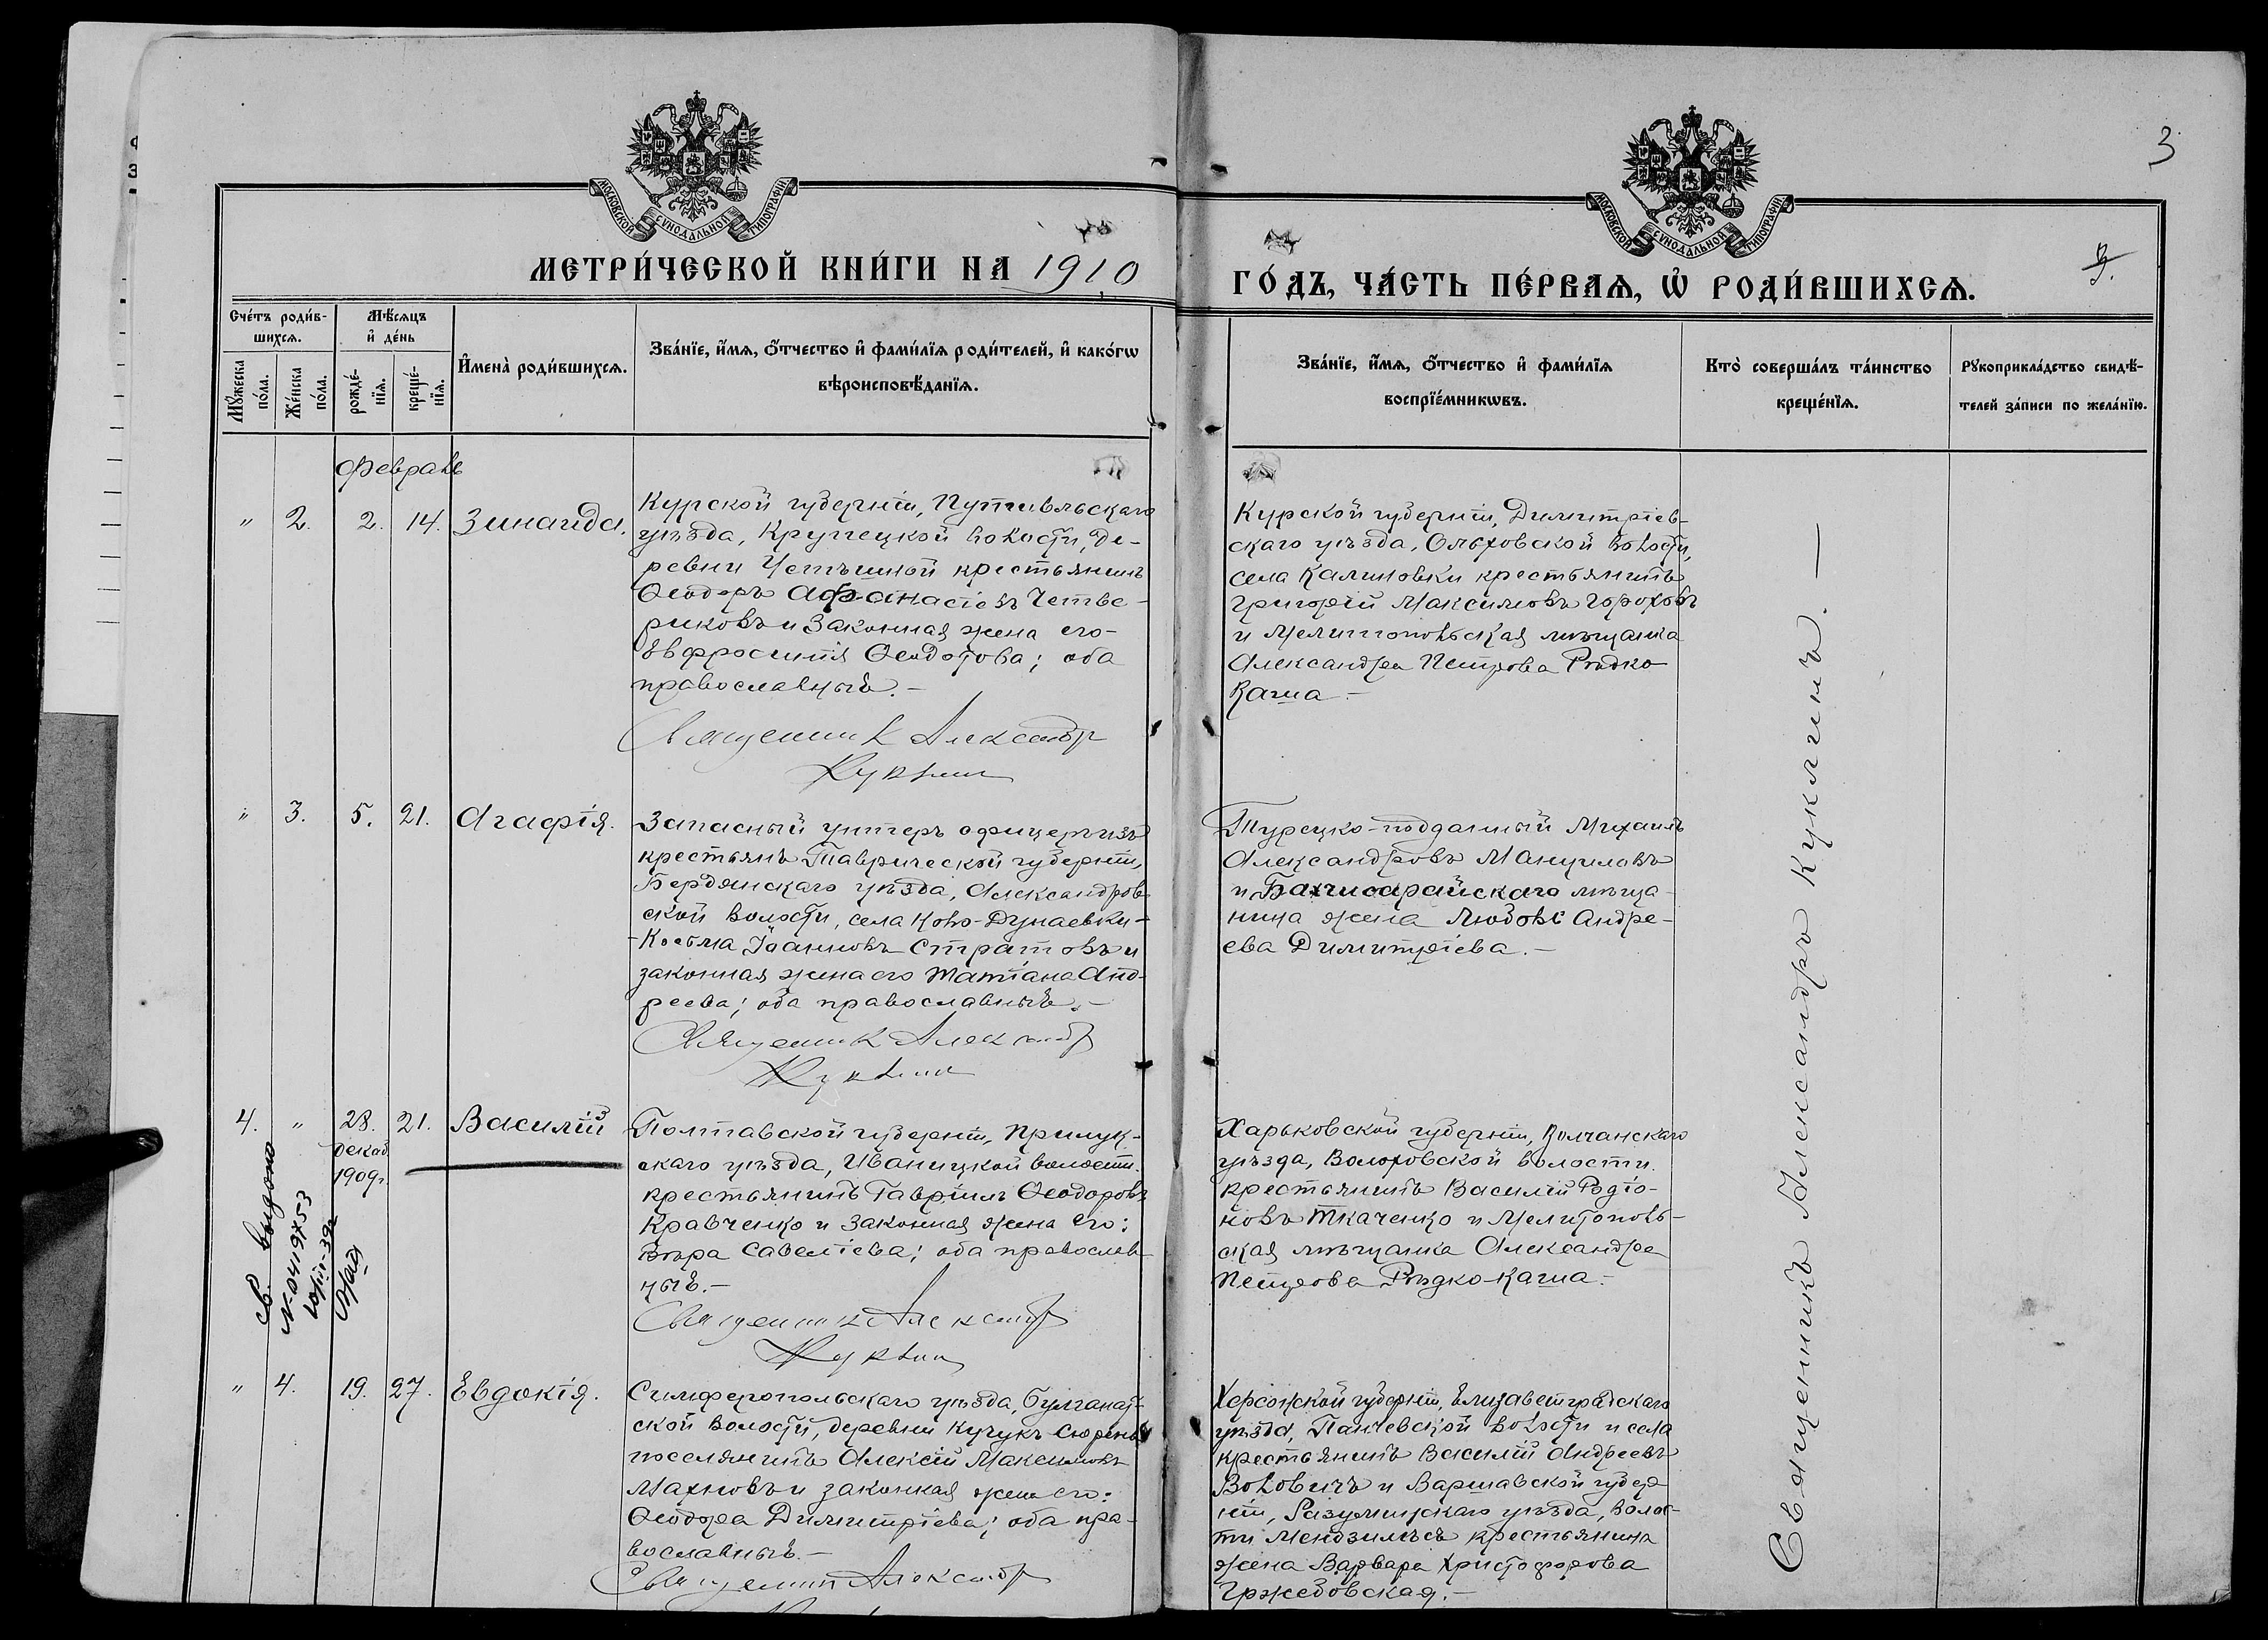 3
МОСКОВСКОЙ СУНОДАЛЬНОЙ ТИПОГРАФІИ.
МОСКОВСКОЙ СУНОДАЛЬНОЙ ТИПОГРАФІИ.
МЕТРИ́ЧЕСКОЙ КНИ́ГИ НА 1910
ГО́ДЪ, ЧА́СТЬ ПЕ́РВАѦ, Ѡ҆ РОДИ́ВШИХСѦ.
Сче́тъ роди́в-
шихсѧ.
Мꙋ́жеска
по́ла.
Же́нска
по́ла.
Мѣ́сѧцъ
и҆ де́нь
рожде́-
нїѧ.
креще́-
нїѧ.
И҆мена̀ роди́вшихсѧ.
Зва́нїе, и҆́мѧ, ѻ҆́тчество и҆ фами́лїѧ роди́телей, и҆ како́гѡ
вѣроисповѣ́данїѧ.
Зва́нїе, и҆́мѧ, ѻ҆́тчество и҆ фами́лїѧ
воспрїе́мникѡвъ.
Кто̀ соверша́лъ та́инство
креще́нїѧ.
Рꙋкоприкла́дство свидѣ́-
телей за́писи по жела́нїю.
Февраль
" 2. 2. 14. Зинаида.
Курской губерніи, Путивльскаго
уѣзда, Крупецкой волости, де-
ревни крестьянинъ
Ѳеодоръ Афанасіевъ Четве-
риковъ и законная жена его
Евфросинія Ѳеодотова; оба
православные.-
Священник Александр
Куклин
Курской губерніи, Димитріев-
скаго уѣзда, Ольховской волости,
села Калиновки крестьянинъ
Григорій Максимовъ Гороховъ
и Мелитопольская мѣщанка
Александра Петрова Рѣдко
Каша.-
" 3. 5. 21. Агафія.
Запасный унтеръ офицеръ изъ
крестьянъ Таврической губерніи,
Бердянскаго уѣзда, Александров-
ской волости, села Ново-Дунаевки-
-Косьма Іоанновъ Стратовъ и
законная жена его Татіана Анд-
реева; оба православные.-
Священник Александр
Куклин
Турецко-подданный Михаилъ
Александровъ Мануиловъ
и Бахчисарайскаго мѣща-
нина жена Любовь Андре-
ева Димитріева.-
4. " 28. 21. Василій
декаб.
1909г.
св. выдано
N-0419753
Полтавской губерніи, Прилук-
скаго уѣзда, Иваницкой волости.
крестьянинъ Гавріилъ Ѳеодоровъ
Кравченко и законная жена его:
Вѣра Савеліева; оба православ-
ные.-
Священник Александр
Куклин
Харьковской губерніи, Волчанскаго
уѣзда, Волоховской волости.
крестьянинъ Василій Родіо-
новъ Ткаченко и Мелитополь-
ская мѣщанка Александра
Петрова Рѣдко-Каша.-
" 4. 19. 27. Евдокія.
Симферопольскаго уѣзда, Булганак-
ской волости, деревни Кучукъ-Сюрень
поселянинъ Алексій Максимовъ
Махновъ и законная жена его:
Ѳеодора Димитріева; оба пра-
вославные.-
Священник Александр
Херсонской губерніи, Елизаветградскаго
уѣзда, Панчевской волости и села
крестьянинъ Василій Андреевъ
Воловичъ и Варшавской губер-
ніи, уѣзда, волос-
ти крестьянина
жена Варвара Христофорова
Гржебовская.-
Священникъ Александръ Куклинъ.